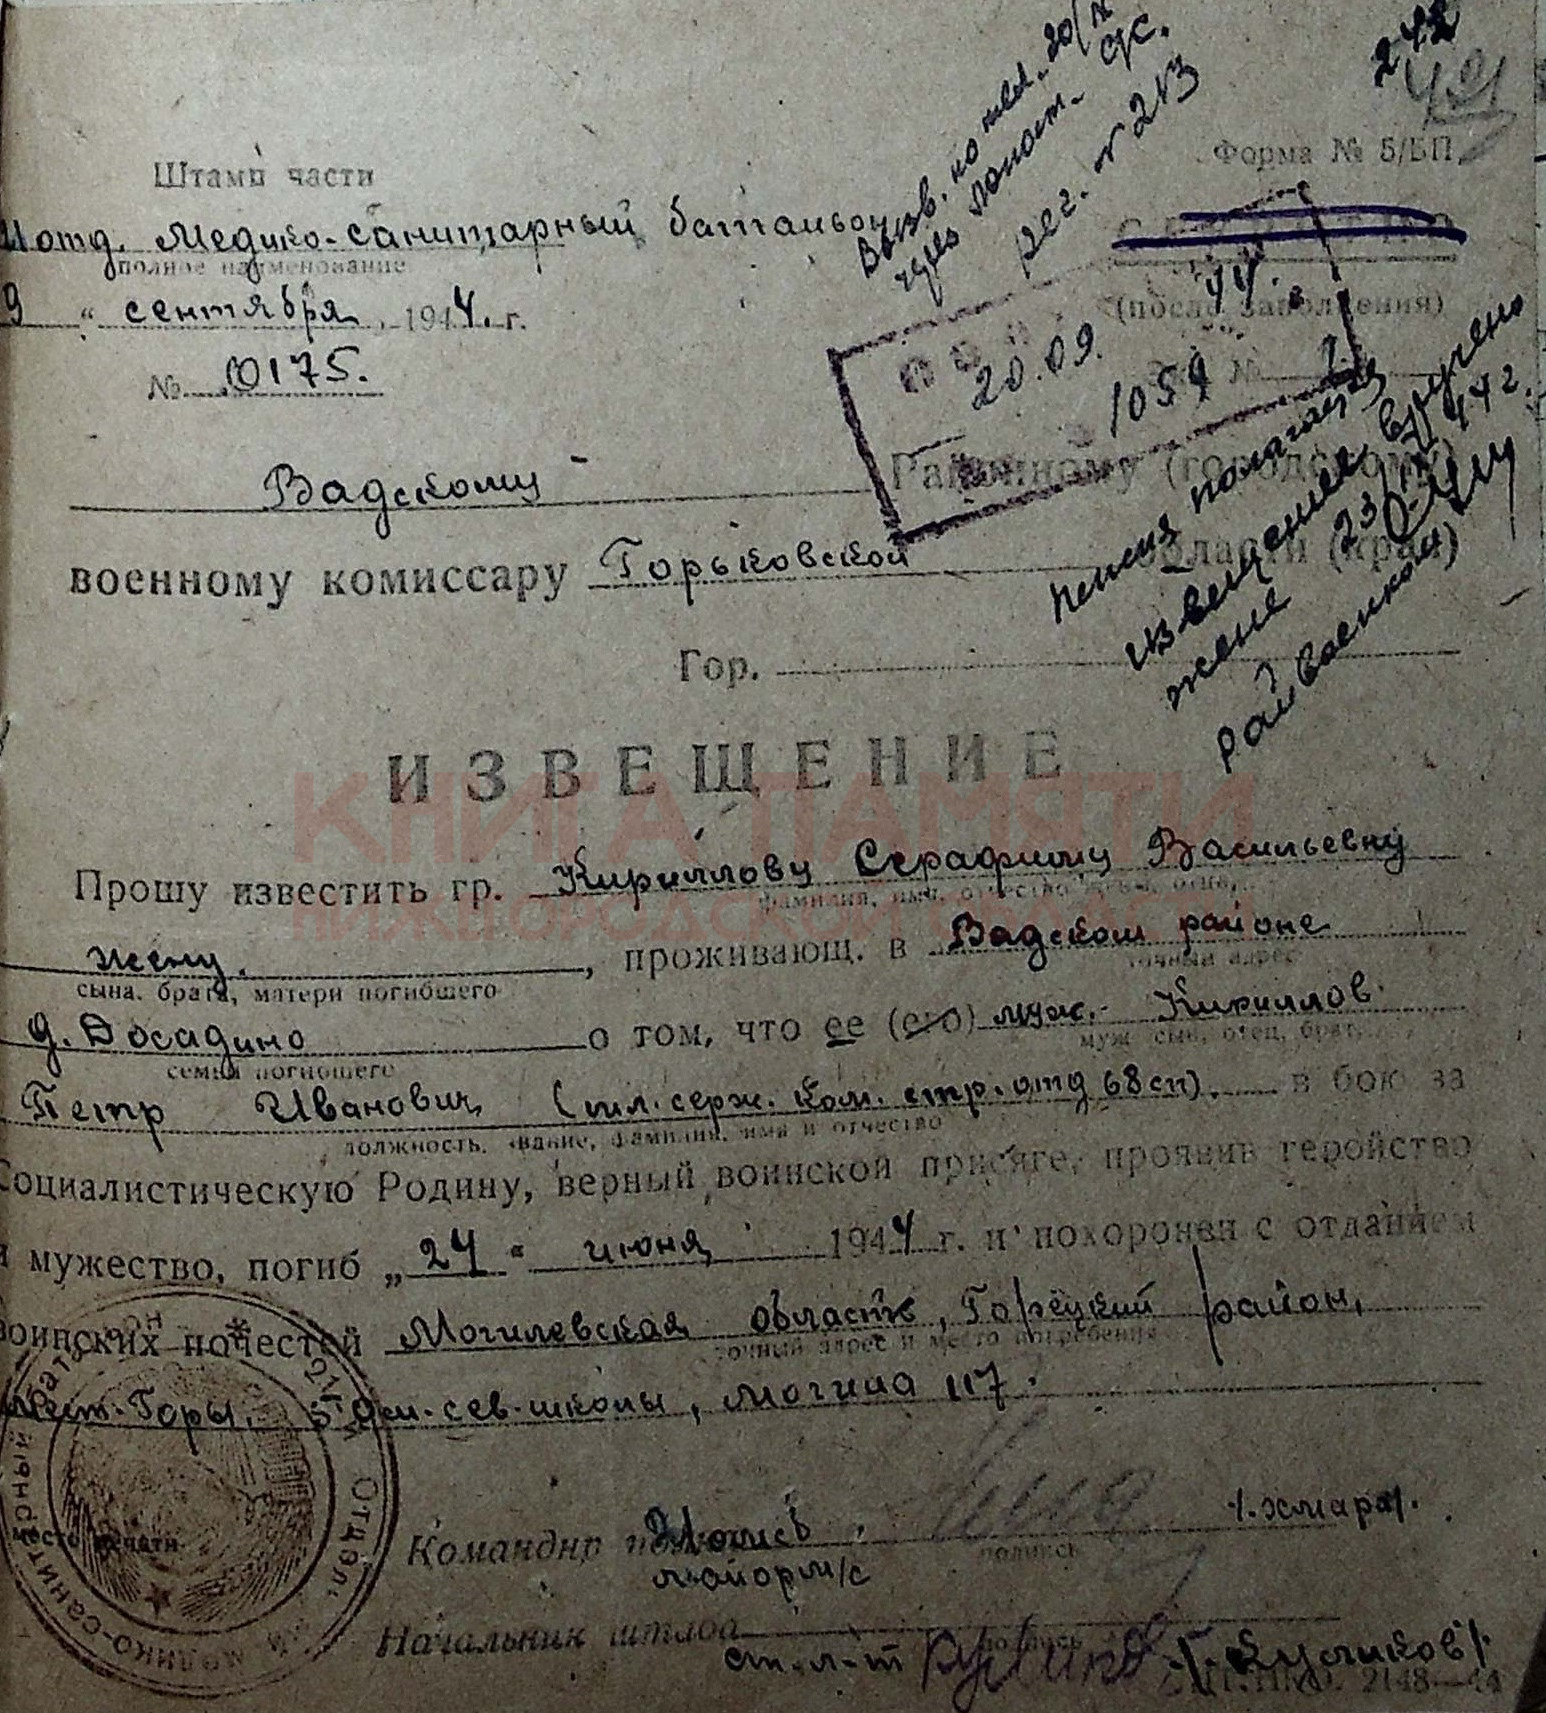 242
421
Форма № 5/БП
Штамп части
отд. Медико-санитарный батальон
полное наименование
9 " сентября 1944. г.
(после заполнения)
№ 0175.
20.09. 44.
1054
рег. № 213
Вадскому Районному (городскому)
военному комиссару Горьковской области (края)
Гор.
Пенсия полагается
извещение вручено
жене 23/IX 44 г.
райвоенком
ИЗВЕЩЕНИЕ
КНИГА ПАМЯТИ
НИЖЕГОРОДСКОЙ ОБЛАСТИ
Прошу известить гр. Кириллову Серафиму Васильевну
фамилия, имя, отчество жены, отца,
жену. , проживающ. в Вадском районе
сына, брата, матери погибшего точный адрес
д. Досадино о том, что ее (его) муж. Кириллов
семьи погибшего муж, сын, отец, брат,
Петр Иванович (мл. серж. ком. стр. отд 68 сп). в бою за
должность, звание, фамилия, имя и отчество
Социалистическую Родину, верный воинской присяге, проявив геройство
и мужество, погиб „24" июня 1944 г. и похоронен с отданием
воинских почестей Могилевская область, Горецкий район,
точный адрес и место погребения
мест. Горы, 5 км. сев. школы, могила 117.
место печати
Командир
майор м/с
подпись
/.Хмара/.
Начальник штаба
подпись
ст. л-т /.Куликов/.
2148—44